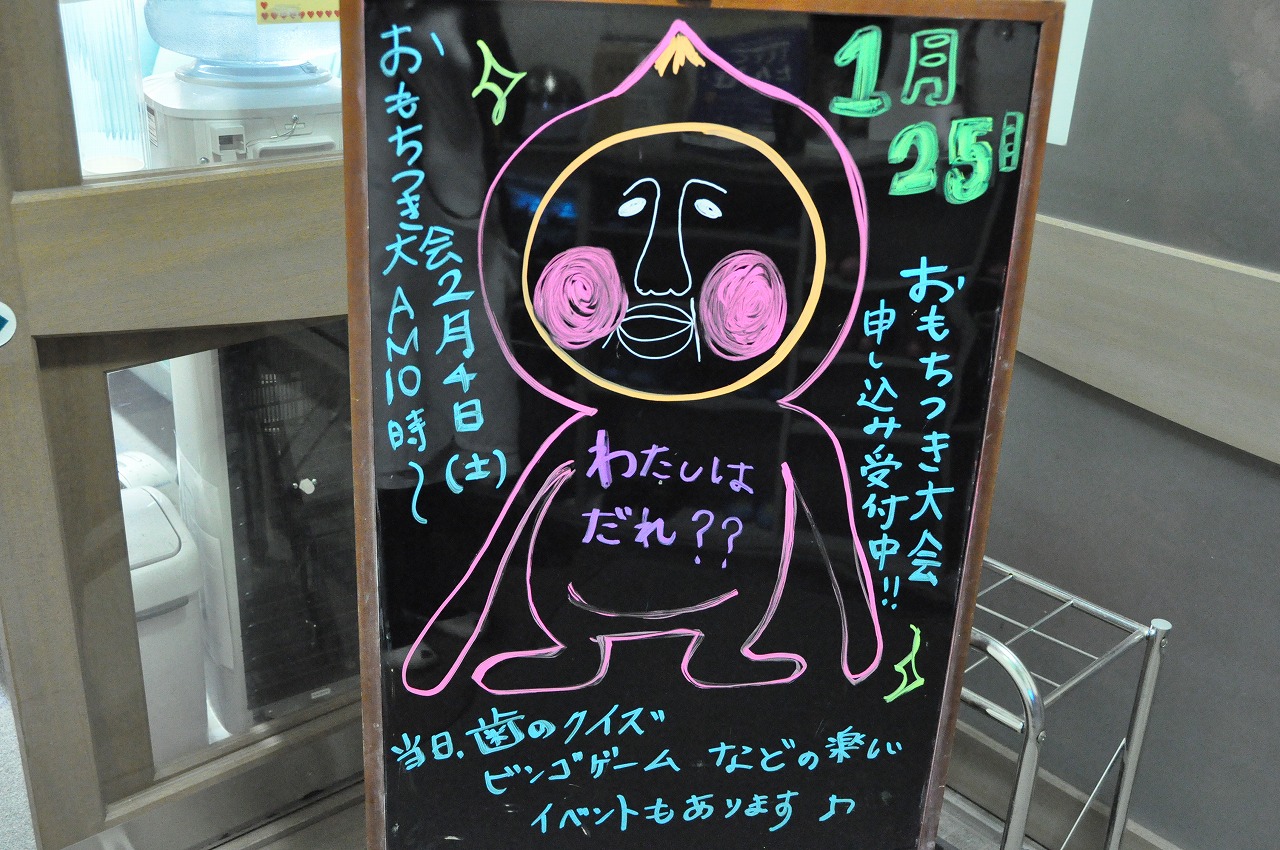 1月
25日
おもちつき大会
申し込み受付中!!
おもちつき大会
2月4日(土)
AM10時～
わたしは
だれ??
当日、歯のクイズ
ビンゴゲーム などの楽しい
イベントもあります♪